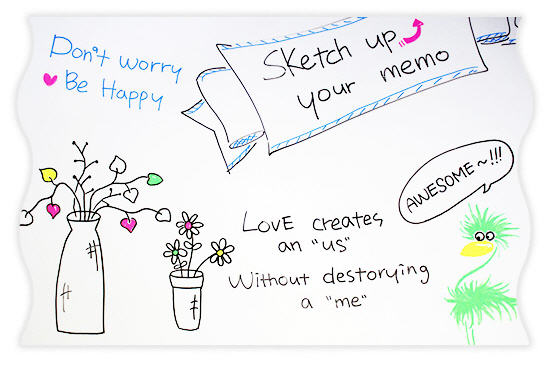 Don't worry
Be Happy
Sketch up
your memo
AWESOME~!!!
LOVE creates
an "us"
Without destorying
a "me"